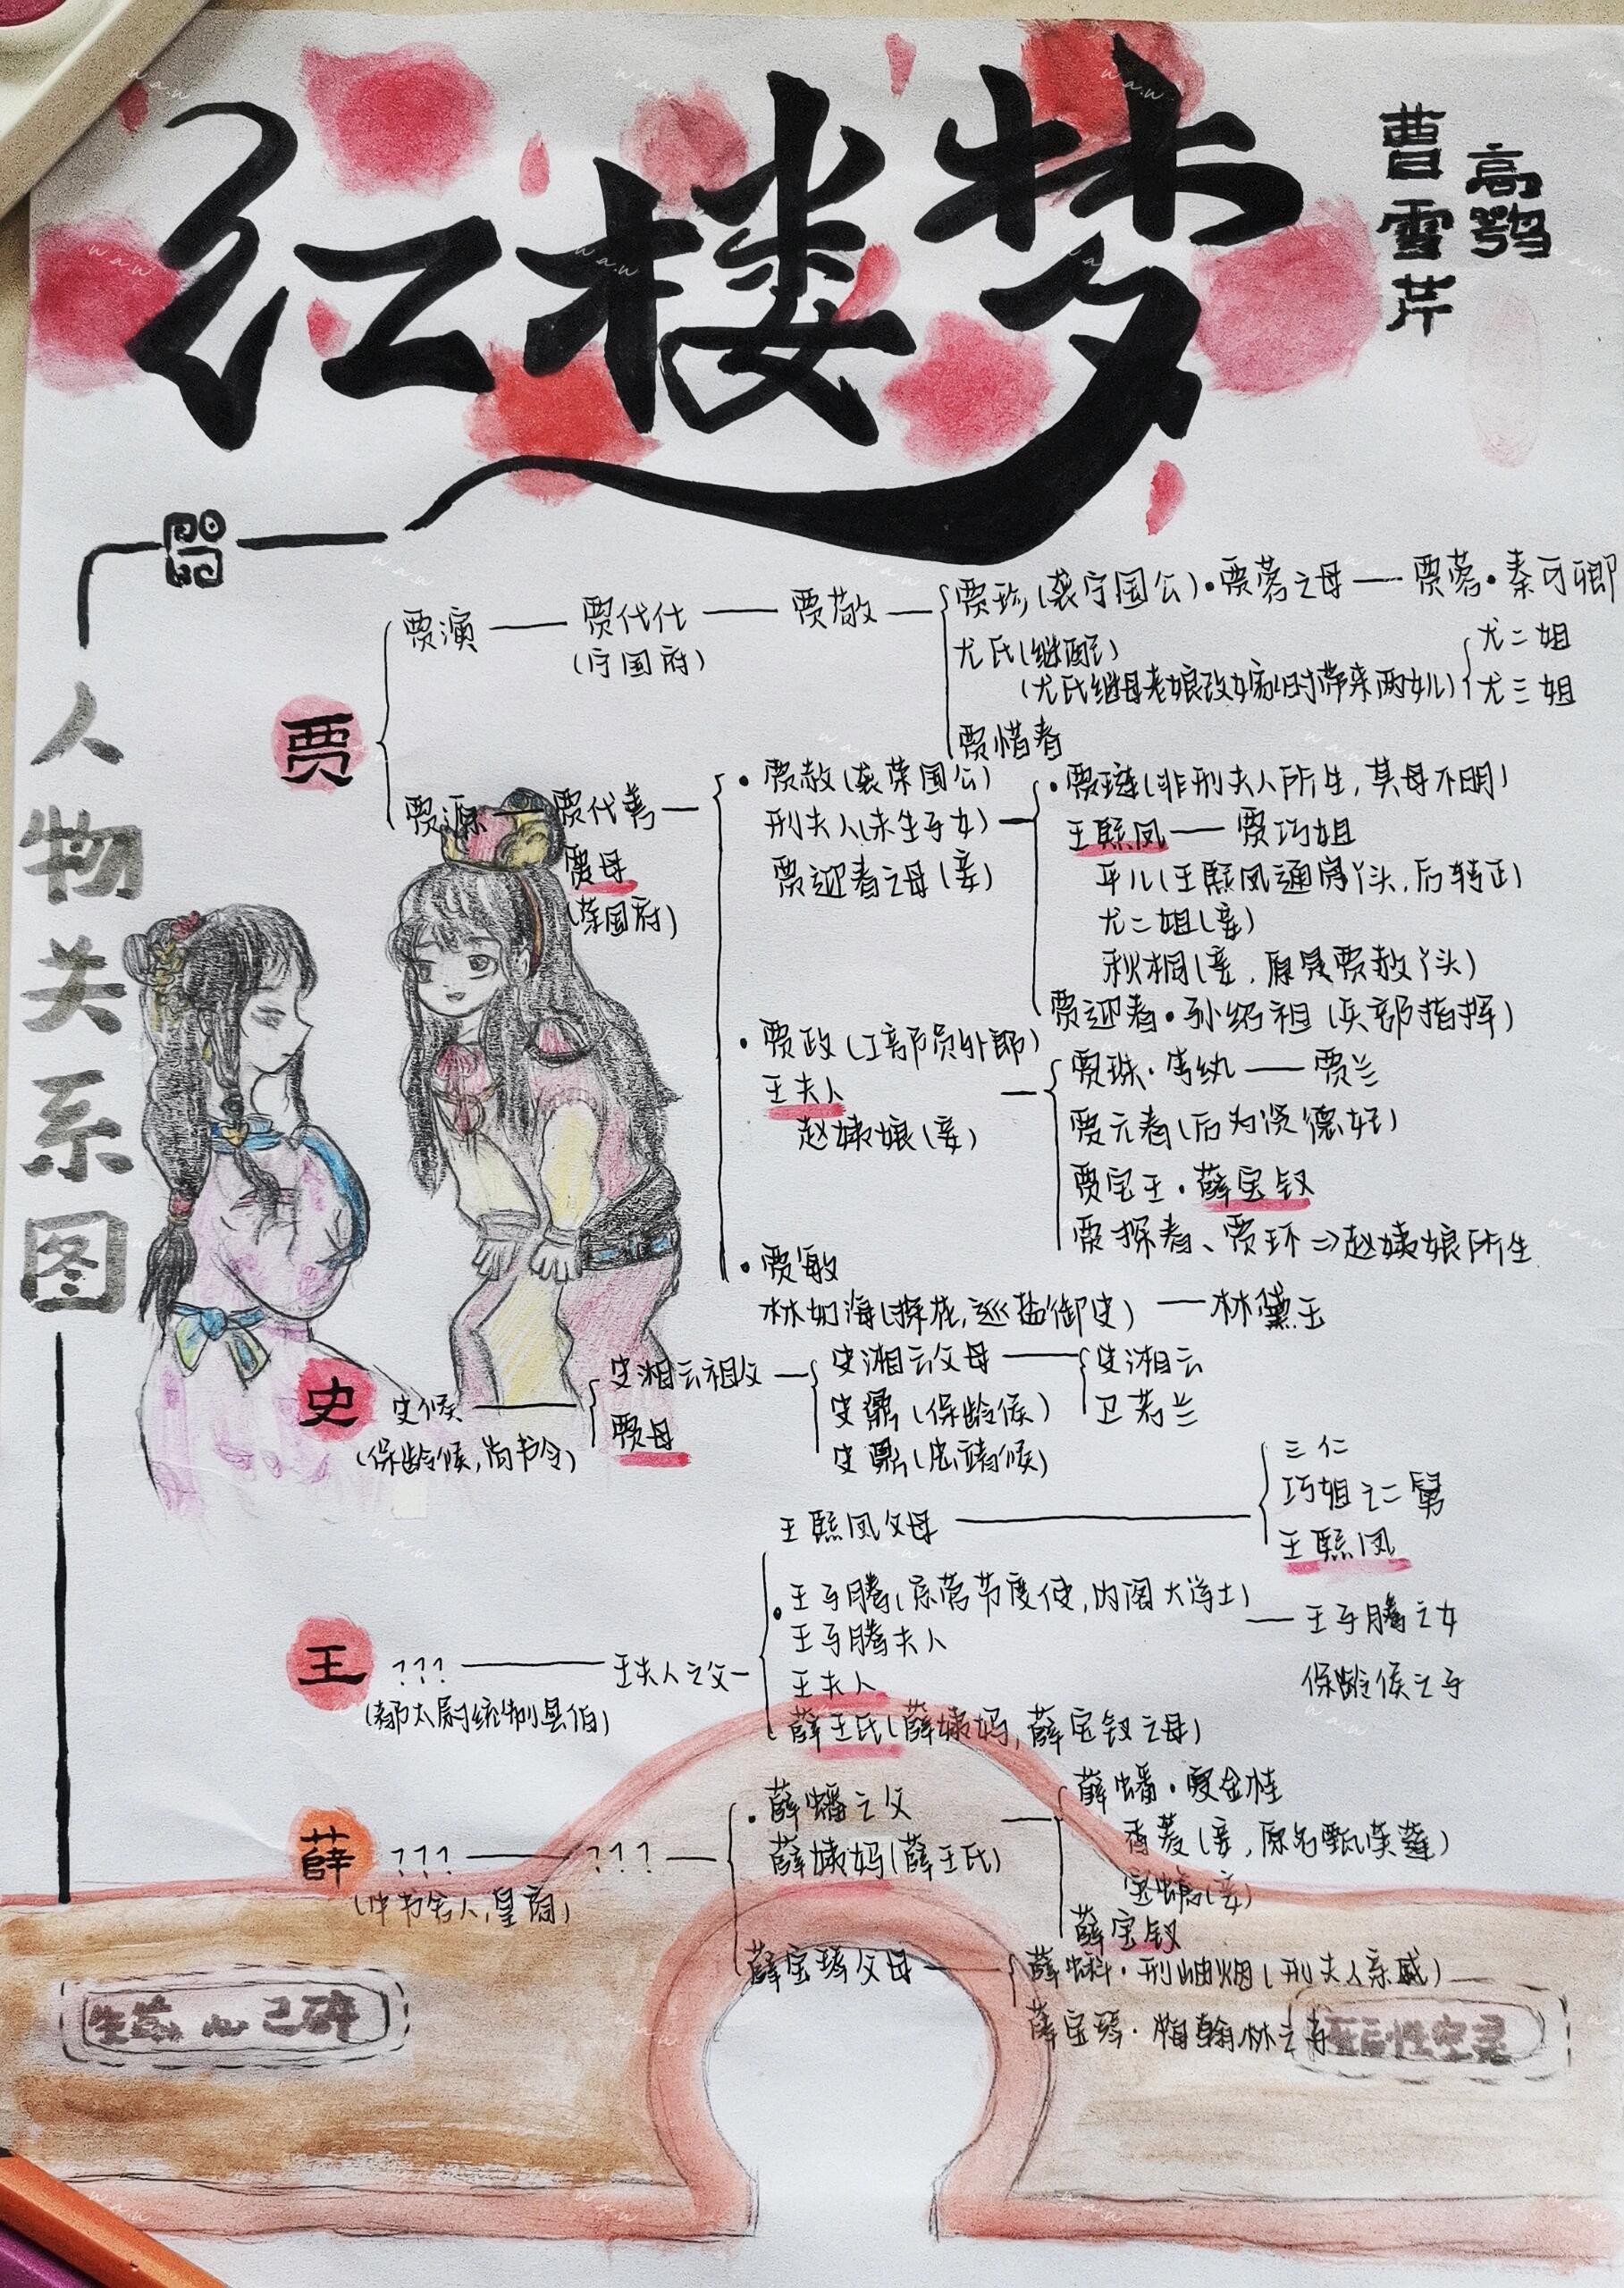 红楼梦
曹雪芹
高鹗
人物关系图
贾
贾演 — 贾代化 — 贾敬
(宁国府)
贾珍(袭宁国公)·贾蓉之母 — 贾蓉·秦可卿
尤氏(继配)
(尤氏继母老娘改嫁时带来两女儿)
尤二姐
尤三姐
贾惜春
贾源 — 贾代善
贾母
(荣国府)
·贾赦(袭荣国公)
刑夫人(未生子女)
贾迎春之母(妾)
·贾琏(非刑夫人所生,其母不明)
王熙凤 — 贾巧姐
平儿(王熙凤通房丫头,后转正)
尤二姐(妾)
秋桐(妾,原是贾赦丫头)
贾迎春·孙绍祖(兵部指挥)
·贾政(工部员外郎)
王夫人
赵姨娘(妾)
贾珠·李纨 — 贾兰
贾元春(后为贤德妃)
贾宝玉·薛宝钗
贾探春、贾环⇒赵姨娘所生
·贾敏
林如海(探花,巡盐御史) — 林黛玉
史
史候
(保龄候,尚书令)
史湘云祖父
贾母
史湘云父母
史鼐(保龄候)
史鼎(忠靖候)
史湘云
卫若兰
王
??? — 王夫人之父
(都太尉统制县伯)
王熙凤父母
王仁
巧姐之二舅
王熙凤
·王子腾(京营节度使,内阁大学士)
王子腾夫人
王子腾之女
保龄候之子
王夫人
薛王氏(薛姨妈,薛宝钗之母)
薛
??? — ???
(中书舍人,皇商)
·薛蟠之父
薛姨妈(薛王氏)
薛蟠·夏金桂
香菱(妾,原名甄英莲)
宝蟾(妾)
薛宝钗
薛宝琴父母
薛蝌·刑岫烟(刑夫人亲戚)
薛宝琴·梅翰林之子
生前心已碎
死后性空灵